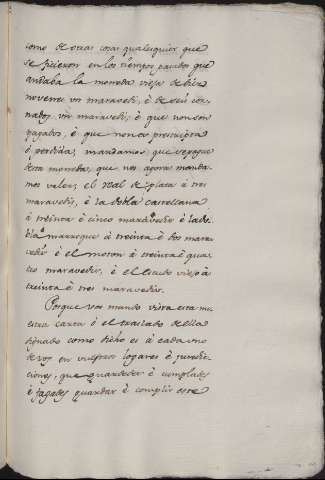 como de otras cosas qualesquier que
se ficieron en los tiempos pasados que
andaba la moneda vieja de diez
novenes un maravedi, è de seis cor-
nados, un maravedi, è que non son
pagados, è que non es prescripta
ò perdida, mandamos, que se pague
desta moneda, que nos agora manda-
mos valer, el real de plata à tres
maravedis, è la dobla castellana
à treinta è cinco maravedis è la do-
bla marroqui à treinta è dos mara-
vedis è el moton à treinta è qua-
tro maravedis, è el Escudo viejo à
treinta è tres maravedis.
Porque vos mando vista esta nu-
estra carta ò el traslado della
signado como dicho es à cada uno
de vos en vuestros logares è juredic-
ciones, que guardedes è cumplades
è fagades guardar è complir este